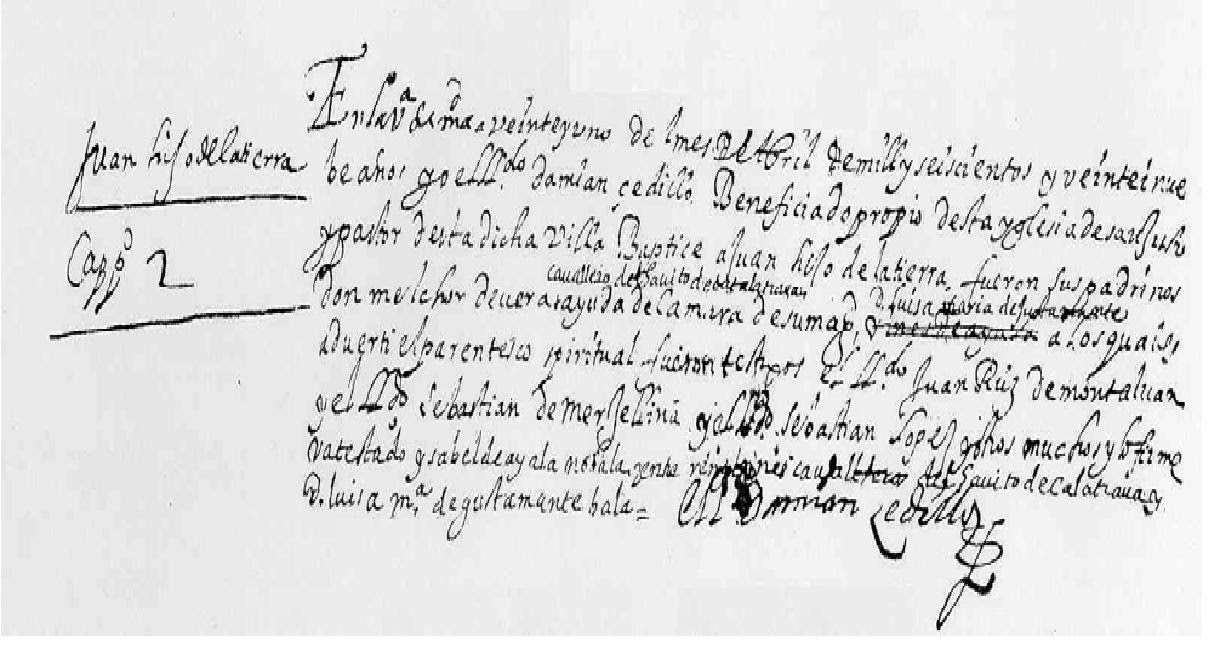 Juan hijo de la tierra
Capp.º 2
En la v.ª de m.d a veinte y uno de lmes De Abril De mill y seiscientos y veinte i nue
be años yo el ll.do damian çedillo Beneficiado propio desta yglesia de san Justo
y pastor desta dicha Villa Baptice a Juan hijo de la tierra, fueron sus padrinos
cauallero del hauito de calatraua
D. luisa maria de gustamante
don melchor de uera, ayuda de Camara de su mag.d, a los quais
aduerti el parentesco spiritual fueron testigos el ll.do Juan Ruiz de montaluan
y el ll.do Sebastian de y el ll.do Sebastian lopez y otros muchos y lo firme
va testado ysabel de ayala no bala, y entre reinglones cauallero del hauito de calatraua y
D. luisa m.ª de gustamante bala = Ll.do Damian Cedillo